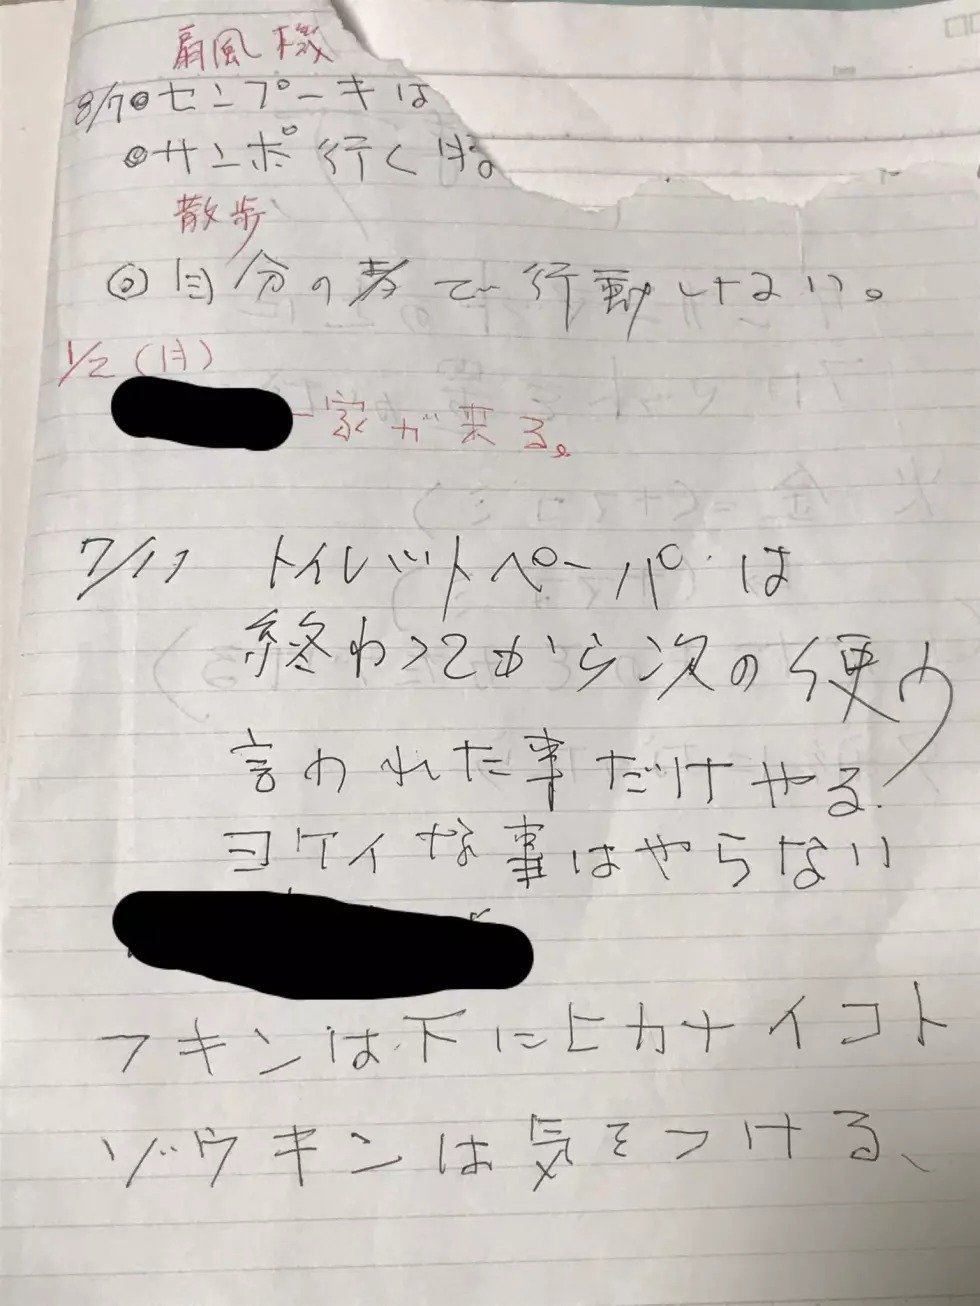 扇風機
8/7◎センプーキは
◎サンポ行くは。
散歩
◎自分の考で行動しない。
1/2(月)
一家が来る。
7/11 トイレットペーパーは
終わってから次の使う
言われた事だけやる。
ヨケイな事はやらない
フキンは下にヒカナイコト
ゾウキンは気をつける、